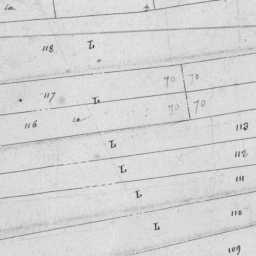 118 L
70 70
117 L
70 70
116
L 113
L 112
L 111
L 110
109